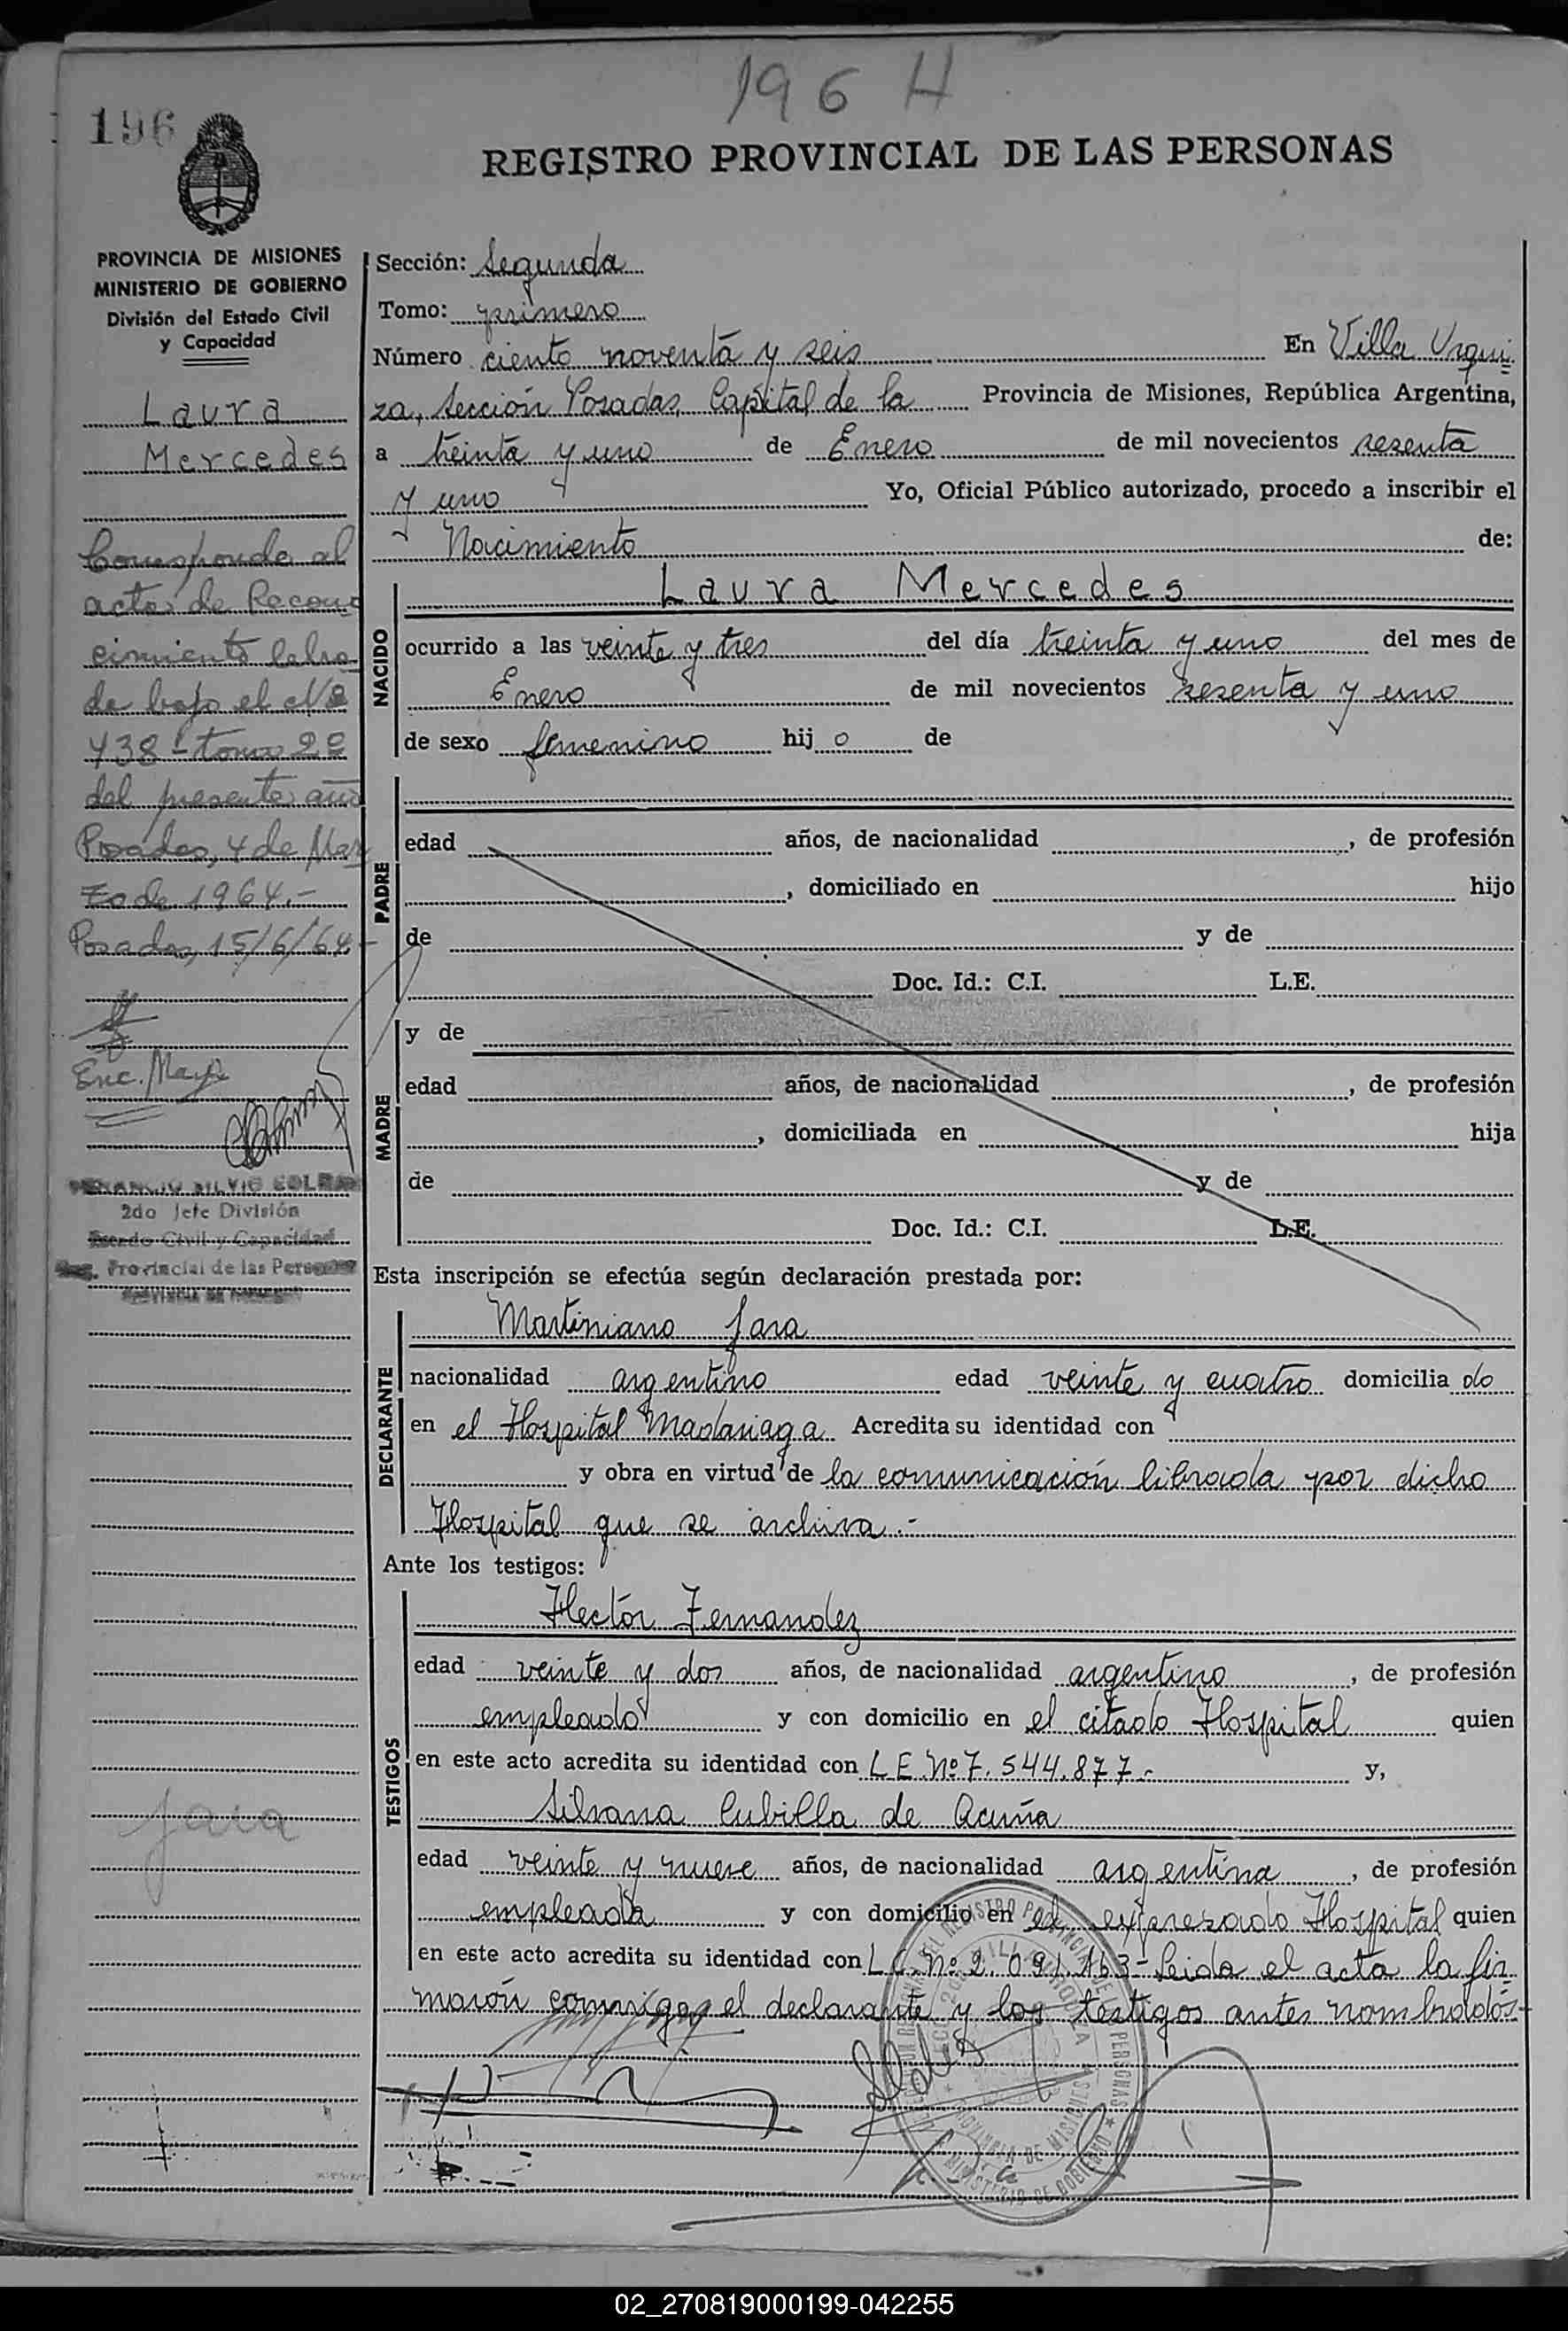 196 H
196
REGISTRO PROVINCIAL DE LAS PERSONAS
PROVINCIA DE MISIONES
MINISTERIO DE GOBIERNO
División del Estado Civil
y Capacidad
Laura
Mercedes
Corresponde al
acta de Recono
cimiento labra
da bajo el Nº
438 - tomo 2º
del presente año
Posadas, 4 de Mar
zo de 1964.-
Posadas, 15/6/64-
Enc. Mayo
2do Jefe División
Estado Civil y Capacidad
Reg. Provincial de las Personas
Jara
Sección: Segunda
Tomo: primero
Número ciento noventa y seis En Villa Urqui
za, Sección Posadas, Capital de la Provincia de Misiones, República Argentina,
a treinta y uno de Enero de mil novecientos sesenta
y uno Yo, Oficial Público autorizado, procedo a inscribir el
Nacimiento de:
NACIDO
Laura Mercedes
ocurrido a las veinte y tres del día treinta y uno del mes de
Enero de mil novecientos sesenta y uno
de sexo femenino hij o de
PADRE
edad años, de nacionalidad , de profesión
, domiciliado en hijo
de y de
Doc. Id.: C.I. L.E.
MADRE
y de
edad años, de nacionalidad , de profesión
, domiciliada en hija
de y de
Doc. Id.: C.I. L.E.
Esta inscripción se efectúa según declaración prestada por:
DECLARANTE
Martiniano Jara
nacionalidad argentino edad veinte y cuatro domicilia do
en el Hospital Madariaga Acredita su identidad con
y obra en virtud de la comunicación librada por dicho
Hospital que se archiva.-
Ante los testigos:
TESTIGOS
Hector Fernandez
edad veinte y dos años, de nacionalidad argentino , de profesión
empleado y con domicilio en el citado Hospital quien
en este acto acredita su identidad con L E Nº 7.544.877.- y,
Silvana Cubilla de Acuña
edad veinte y nueve años, de nacionalidad argentina , de profesión
empleada y con domicilio en el expresado Hospital quien
en este acto acredita su identidad con L C. Nº 2.091.163- Leida el acta la fir
maron conmigo, el declarante y los testigos antes nombrados-
02_270819000199-042255